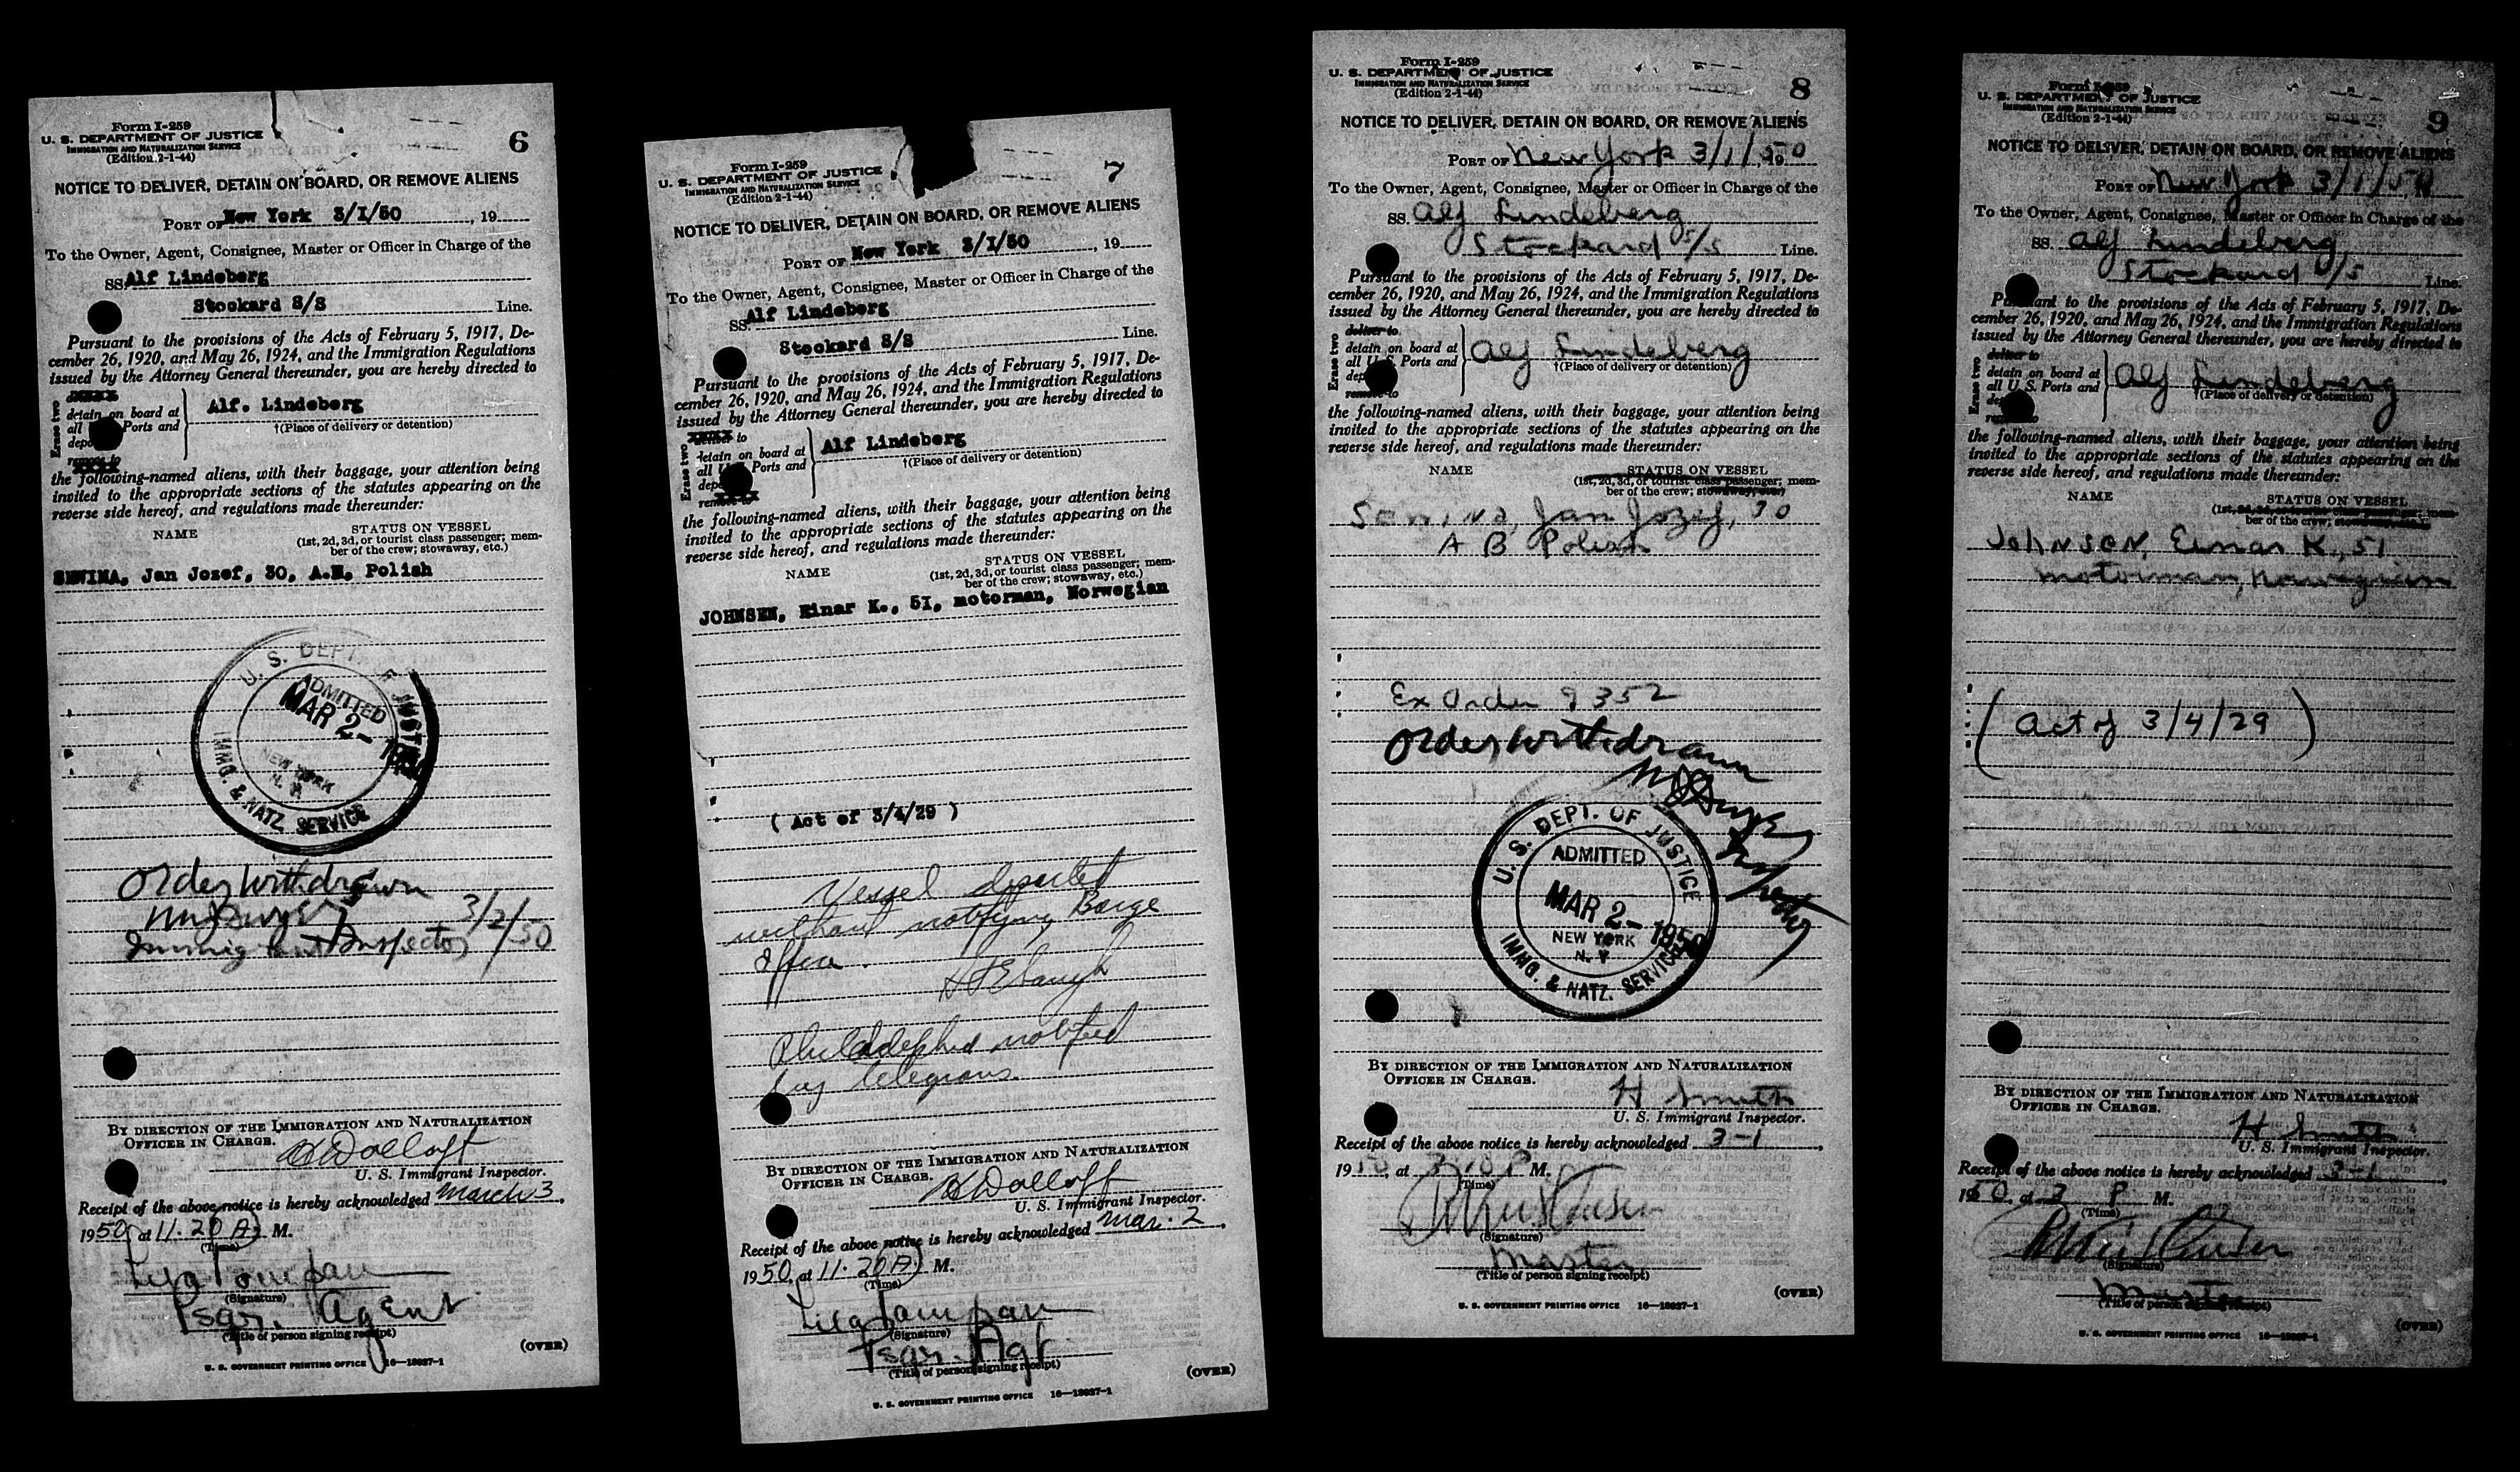 Form I-259
U. S. DEPARTMENT OF JUSTICE
IMMIGRATION AND NATURALIZATION SERVICE
(Edition 2-1-44)
6
NOTICE TO DELIVER, DETAIN ON BOARD, OR REMOVE ALIENS
PORT OF New York 3/1/50, 19
To the Owner, Agent, Consignee, Master or Officer in Charge of the
SS Alf Lindeberg
Stockard S/S Line.
Pursuant to the provisions of the Acts of February 5, 1917, De-
cember 26, 1920, and May 26, 1924, and the Immigration Regulations
issued by the Attorney General thereunder, you are hereby directed to
Erase two
detain on board at
all Ports and
remove to
Alf. Lindeberg
†(Place of delivery or detention)
the following-named aliens, with their baggage, your attention being
invited to the appropriate sections of the statutes appearing on the
reverse side hereof, and regulations made thereunder:
NAME STATUS ON VESSEL
(1st, 2d, 3d, or tourist class passenger; mem-
ber of the crew; stowaway, etc.)
Jan Jozef, 30, Polish
U. S. DEPT. OF JUSTICE
ADMITTED
MAR 2- 1950
NEW YORK
N. Y.
IMMG. & NATZ. SERVICE
Order Withdrawn
3/2/50
Immigrant Inspector
BY DIRECTION OF THE IMMIGRATION AND NATURALIZATION
OFFICER IN CHARGE.
U. S. Immigrant Inspector.
Receipt of the above notice is hereby acknowledged March 3,
1950, at 11.20 A. M.
(Time)
(Signature)
Psgr. Agent
(Title of person signing receipt)
(OVER)
U. S. GOVERNMENT PRINTING OFFICE 16—18027-1
Form I-259
U. S. DEPARTMENT OF JUSTICE
IMMIGRATION AND NATURALIZATION SERVICE
(Edition 2-1-44)
7
NOTICE TO DELIVER, DETAIN ON BOARD, OR REMOVE ALIENS
PORT OF New York 3/1/50, 19
To the Owner, Agent, Consignee, Master or Officer in Charge of the
SS Alf Lindeberg
Stockard S/S Line.
Pursuant to the provisions of the Acts of February 5, 1917, De-
cember 26, 1920, and May 26, 1924, and the Immigration Regulations
issued by the Attorney General thereunder, you are hereby directed to
Erase two
detain on board at
all Ports and
Alf Lindeberg
†(Place of delivery or detention)
the following-named aliens, with their baggage, your attention being
invited to the appropriate sections of the statutes appearing on the
reverse side hereof, and regulations made thereunder:
NAME STATUS ON VESSEL
(1st, 2d, 3d, or tourist class passenger; mem-
ber of the crew; stowaway, etc.)
JOHNSEN, Einar K., 51, motorman, Norwegian
( Act of 3/4/29 )
Vessel departed
without notifying Barge
Office.
Philadelphia notified
by telegram.
BY DIRECTION OF THE IMMIGRATION AND NATURALIZATION
OFFICER IN CHARGE.
U. S. Immigrant Inspector.
Receipt of the above notice is hereby acknowledged Mar. 2,
1950, at 11.20 A. M.
(Time)
(Signature)
Psgr. Agt.
(Title of person signing receipt)
(OVER)
U. S. GOVERNMENT PRINTING OFFICE 16—18027-1
Form I-259
U. S. DEPARTMENT OF JUSTICE
IMMIGRATION AND NATURALIZATION SERVICE
(Edition 2-1-44)
8
NOTICE TO DELIVER, DETAIN ON BOARD, OR REMOVE ALIENS
PORT OF New York 3/1/50
To the Owner, Agent, Consignee, Master or Officer in Charge of the
SS. Alf Lindeberg
Stockard S/S Line.
Pursuant to the provisions of the Acts of February 5, 1917, De-
cember 26, 1920, and May 26, 1924, and the Immigration Regulations
issued by the Attorney General thereunder, you are hereby directed to
Erase two
deliver to
detain on board at
all U.S. Ports and
remove to
Alf Lindeberg
†(Place of delivery or detention)
the following-named aliens, with their baggage, your attention being
invited to the appropriate sections of the statutes appearing on the
reverse side hereof, and regulations made thereunder:
NAME STATUS ON VESSEL
(1st, 2d, 3d, or tourist class passenger; mem-
ber of the crew; stowaway, etc.)
Jan Jozef, 30
A B Polish
Ex Order 9352
Order Withdrawn
Inspector
U. S. DEPT. OF JUSTICE
ADMITTED
MAR 2- 1950
NEW YORK
N. Y.
IMMG. & NATZ. SERVICE
BY DIRECTION OF THE IMMIGRATION AND NATURALIZATION
OFFICER IN CHARGE.
H Smith
U. S. Immigrant Inspector.
Receipt of the above notice is hereby acknowledged 3-1,
1950, at 3/10 P M.
(Time)
(Signature)
Master
(Title of person signing receipt)
(OVER)
U. S. GOVERNMENT PRINTING OFFICE 16—18027-1
Form I-259
U. S. DEPARTMENT OF JUSTICE
IMMIGRATION AND NATURALIZATION SERVICE
(Edition 2-1-44)
9
NOTICE TO DELIVER, DETAIN ON BOARD, OR REMOVE ALIENS
PORT OF New York 3/1/50
To the Owner, Agent, Consignee, Master or Officer in Charge of the
SS. Alf Lindeberg
Stockard S/S Line.
Pursuant to the provisions of the Acts of February 5, 1917, De-
cember 26, 1920, and May 26, 1924, and the Immigration Regulations
issued by the Attorney General thereunder, you are hereby directed to
Erase two
deliver to
detain on board at
all U.S. Ports and
remove to
Alf Lindeberg
†(Place of delivery or detention)
the following-named aliens, with their baggage, your attention being
invited to the appropriate sections of the statutes appearing on the
reverse side hereof, and regulations made thereunder:
NAME STATUS ON VESSEL
(1st, 2d, 3d, or tourist class passenger; mem-
ber of the crew; stowaway, etc.)
Johnsen, Einar K., 51
motorman, Norwegian
( Act of 3/4/29 )
BY DIRECTION OF THE IMMIGRATION AND NATURALIZATION
OFFICER IN CHARGE.
H Smith
U. S. Immigrant Inspector.
Receipt of the above notice is hereby acknowledged 3-1,
1950, at 3 P M.
(Time)
(Signature)
Master
(Title of person signing receipt)
(OVER)
U. S. GOVERNMENT PRINTING OFFICE 16—18027-1